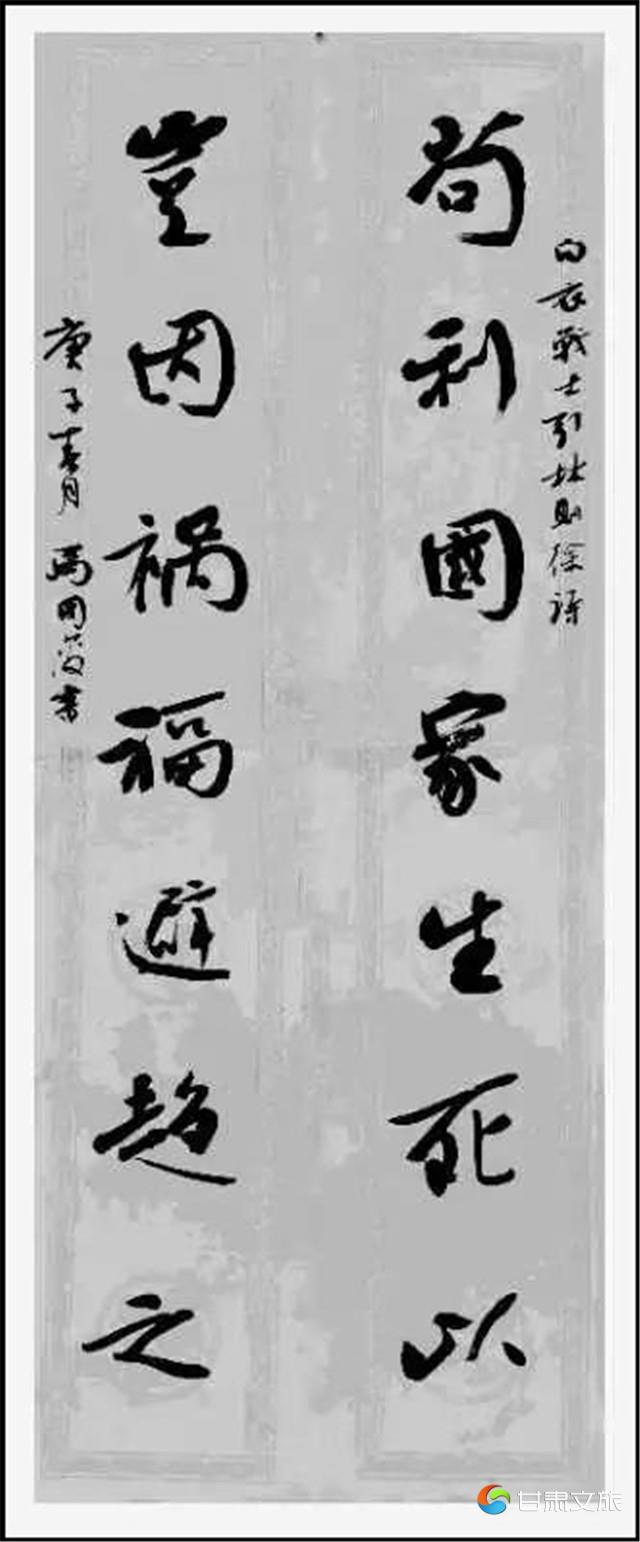 白衣戰士引林则徐诗
苟利國家生死以
豈因祸福避趋之
庚子春月 书
甘肃文旅